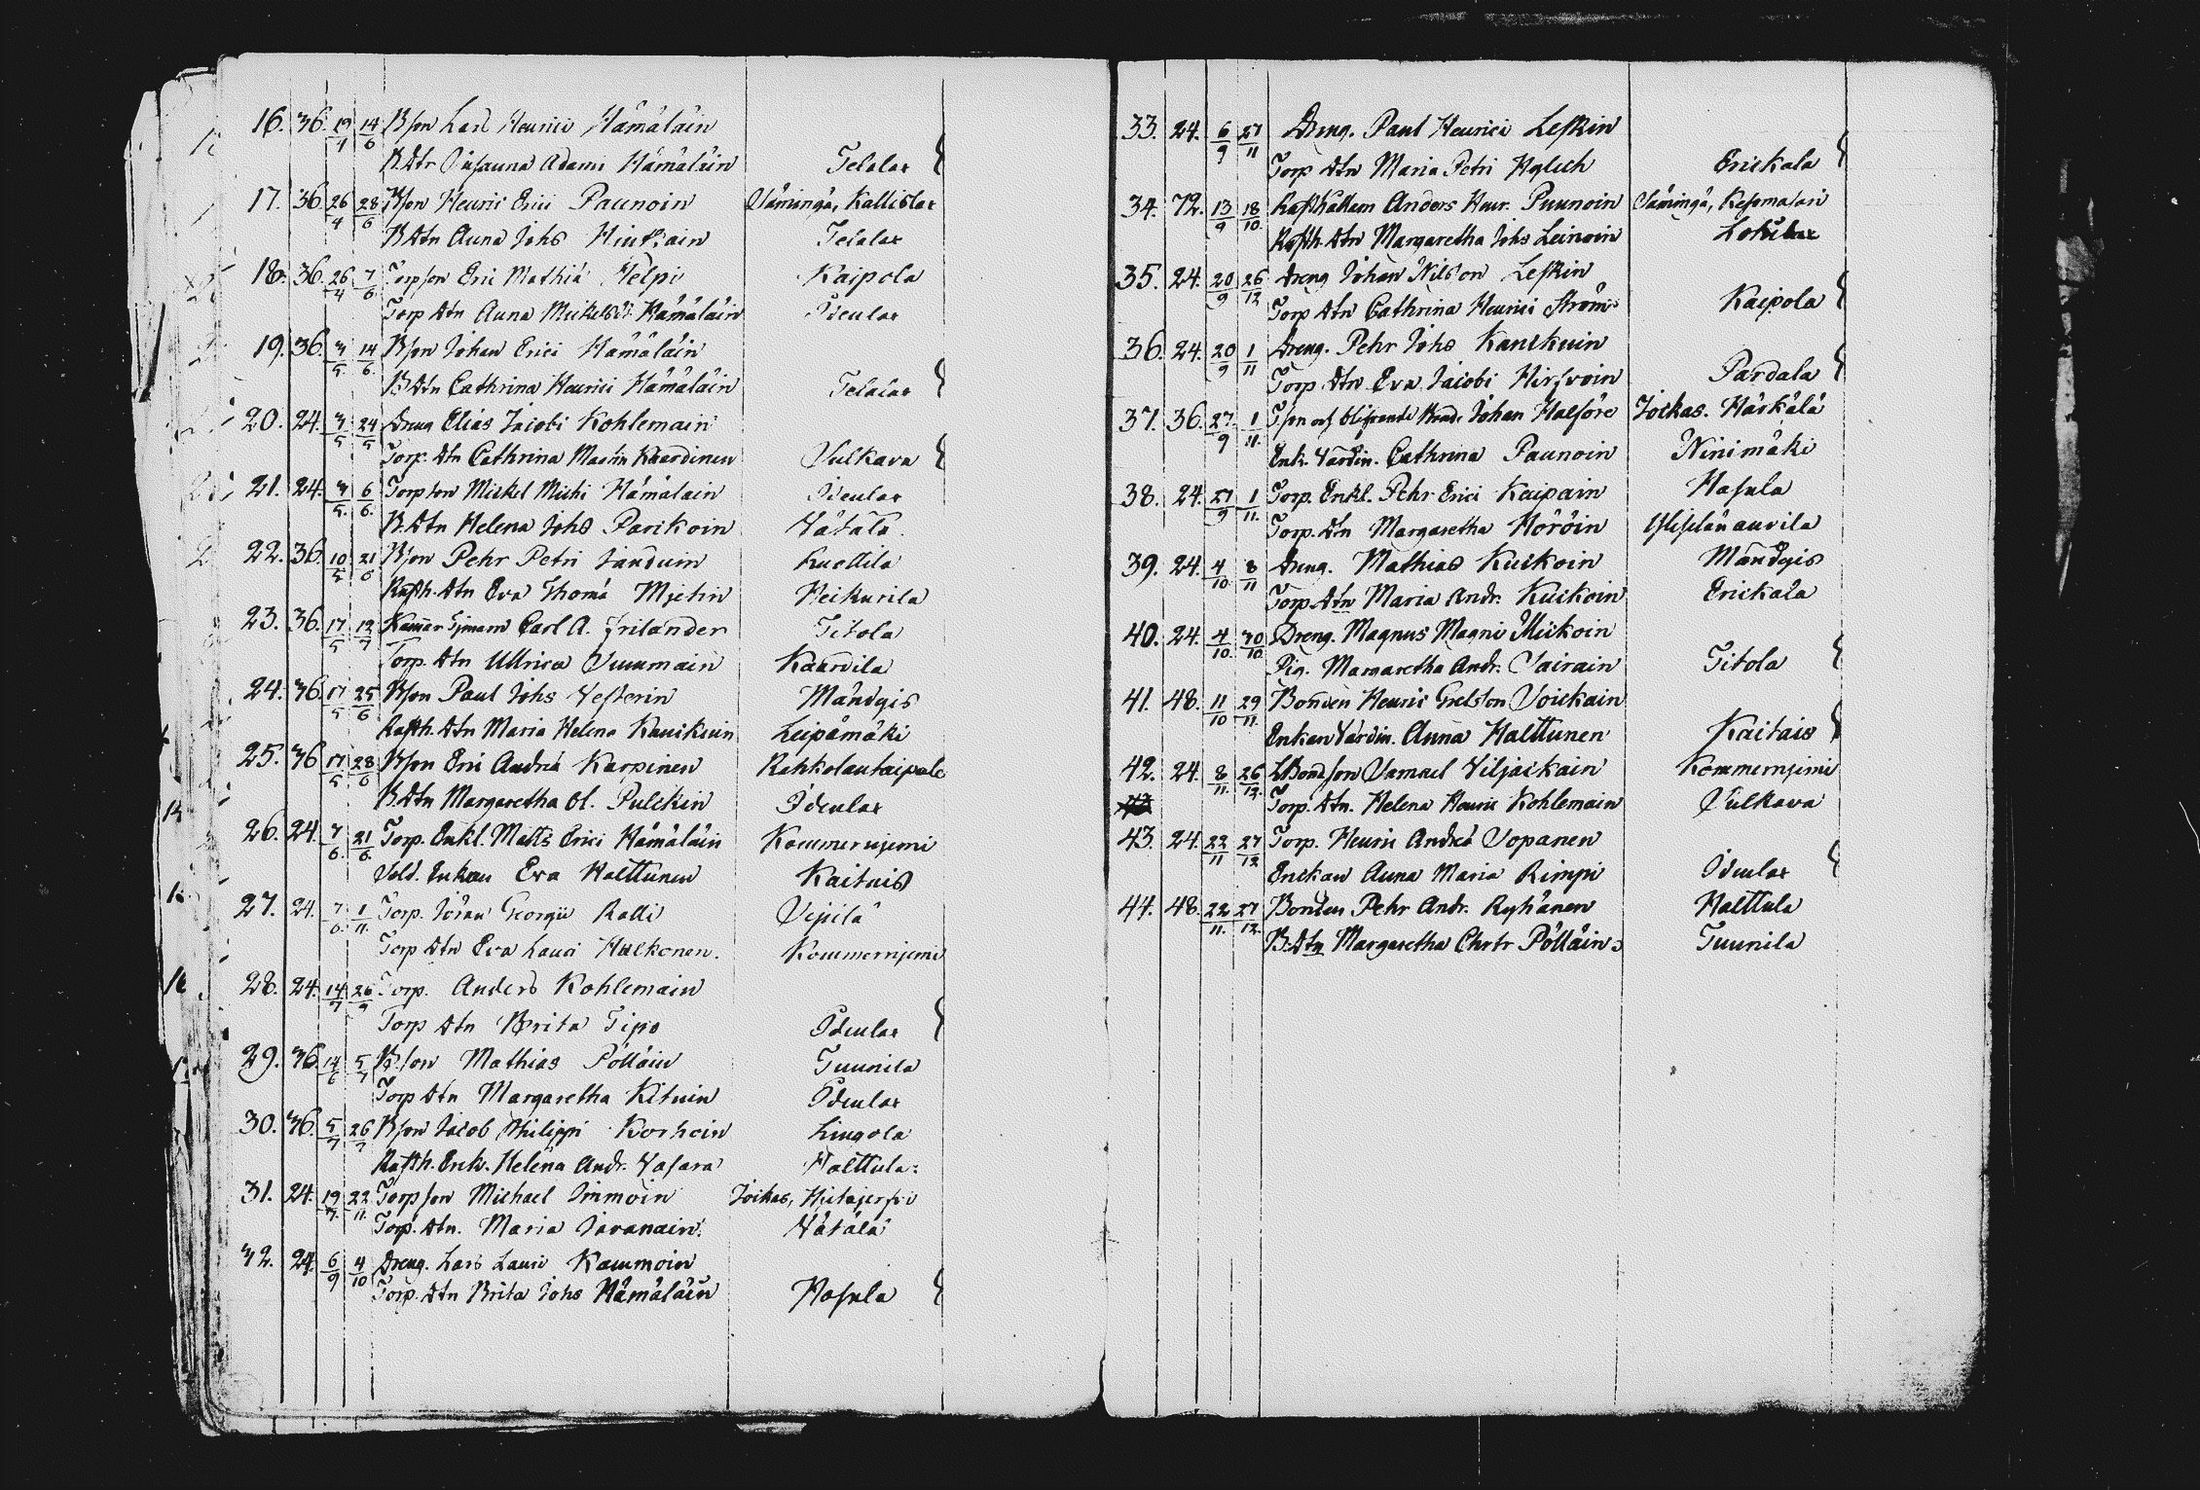 16. 36. 19/4 14/6 Bson Lars Henrici Hämäläin
B.Dtr Susanna Adami Hämäläin Telalax
17. 36. 26/4 28/6 Bson Henric Erici Paunoin Säminge, Kallislax
B Dtn Anna Johs Hintsain Telalax
18. 36. 26/4 7/6 Torpson Eric Mathiæ Helpi Kaipola
Torp Dtn Anna Mickelsd. Hämäläin Ideulax
19. 36. 3/5 14/6 Bson Johan Erici Hämäläin
B Dtn Cathrina Henrici Hämäläin Telalax
20. 24. 3/5 24/5 Dreng Elias Jacobi Kohlemain
Torp. Dtn Cathrina Martin Kaardinen Sulkava
21. 24. 3/5 6/6 Torpson Mickel Michi Hämäläin Ideulax
B. Dtn Helena Johs Parikoin Vätälä
22. 36. 10/5 21/6 Bson Pehr Petri Janduin Kuottila
Rusth. Dtn Eva Thomæ Mjetin Heikurila
23. 36. 17/5 12/7 Carl A. Frilander Titola
Torp. Dtn Ullrica Summain Kaartila
24. 36 17/5 25/6 Bson Paul Johs Vesterin Mändyis
Rusth. Dtn Maria Helena Kauikuin Leipämäki
25. 36 17/5 28/6 Bson Eric Andreæ Karpinen Rahkolantaipale
B Dtn Margaretha Ol. Pulckin Ideulax
26. 24. 7/6. 21/6. Torp. Enkl. Matts Erici Hämäläin Kommerniemi
Sold. Enkan Eva Halttunen Kaitais
27. 24. 7/6. 1/11. Torp. Jöran Georgii Ralli Sipilä
Torp Dtn Eva Lauri Hulkonen. Kommerniemi
28. 24. 14/7 26/9 Torp. Anders Kohlemain
Torp Dtn Brita Tipo Ideulax
29. 36. 14/6 5/7 B.son Mathias Pölläin Tuunila
Torp Dtn Margaretha Kituin Ideulax
30. 36. 5/7 26/7 Bson Jacob Philippi Korhoin Lingola
Rusth. Enk. Helena Andr. Vasara Halttula
31. 24. 19/7. 22/11. Torpson Michael Immoin Joikas, Hietajerfvi
Torp. Dtn. Maria Javanain Vätälä
32. 24. 6/9 4/10 Dreng. Lars Lauri Kammoin
Torp. Dtn Brita Johs Hämäläin Hasula
33. 24. 6/9 27/11 Dreng. Paul Henrici Leskin
Torp Dtn Maria Petri Erickala
34. 72. 13/9 18/10. Rusthållaren Anders Henr. Puunoin Säminge, Kesamasari
Rusth. Dtn Margaretha Johs Leinoin Lohilax
35. 24. 20/9 26/12 Dreng Johan Nilsson Leskin
Torp Dtn Cathrina Henrici Ström Kaipola
36. 24. 20/9 1/11 Dreng. Pehr Johs Kanckuin
Torp Dtn Eva Jacobi Hirfvoin Pardala
37. 36. 27/9 1/11. Johan Halföre Joikas. Härkälä
Enk. Värdin. Cathrina Paunoin Ninimäki
38. 24. 27/9 1/11. Torp. Enkl. Pehr Erici Kaipain Hasula
Torp. Dtn Margaretha Höröin
39. 24. 4/10. 8/11 Dreng. Mathias Kuikoin Mändyis
Torp Dtn Maria Andr. Kuikoin Erickala
40. 24. 4/10. 30/10 Dreng. Magnus Magni Miikoin
Pig. Margaretha Andr. Sairain Titola
41. 48. 11/10 29/11. Bonden Henric Grelsson Soickain
Enkan Värdin. Anna Halttunen Kaitais
42. 24. 8/11. 26/12. Samuel Viljackain Kommerniemi
Torp. Dtn. Helena Henric Kohlemain Sulkava
43. 24. 22/11 27/12 Torp. Henric Andreæ Sopanen
Enckan Anna Maria Rimpi Ideulax
44. 48. 22/11. 27/12. Bonden Pehr Andr. Ryhänen Halttula
B. Dtn Margaretha Chrtr Pölläin Tuunila